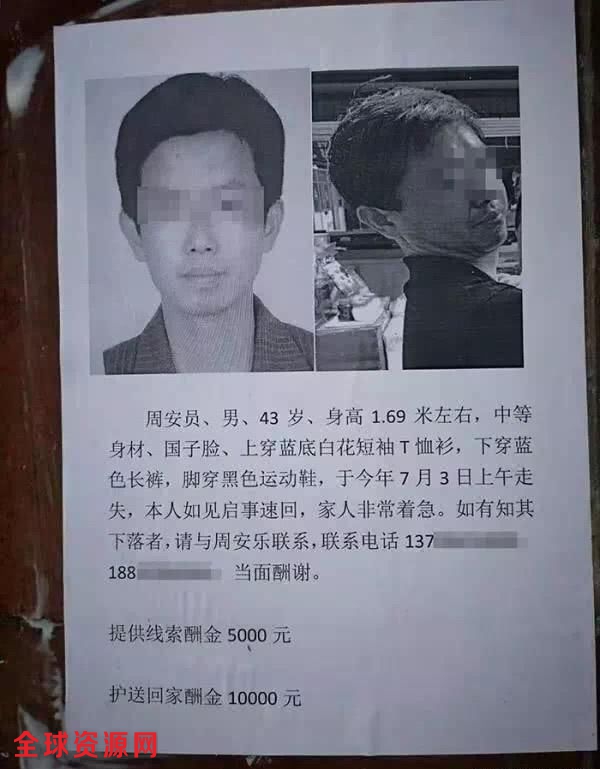 周安员、男、43 岁、身高 1.69 米左右，中等
身材、国子脸、上穿蓝底白花短袖 T 恤衫，下穿蓝
色长裤，脚穿黑色运动鞋，于今年 7 月 3 日上午走
失，本人如见启事速回，家人非常着急。如有知其
下落者，请与周安乐联系，联系电话 137
188 当面酬谢。
提供线索酬金 5000 元
护送回家酬金 10000 元
全球资源网